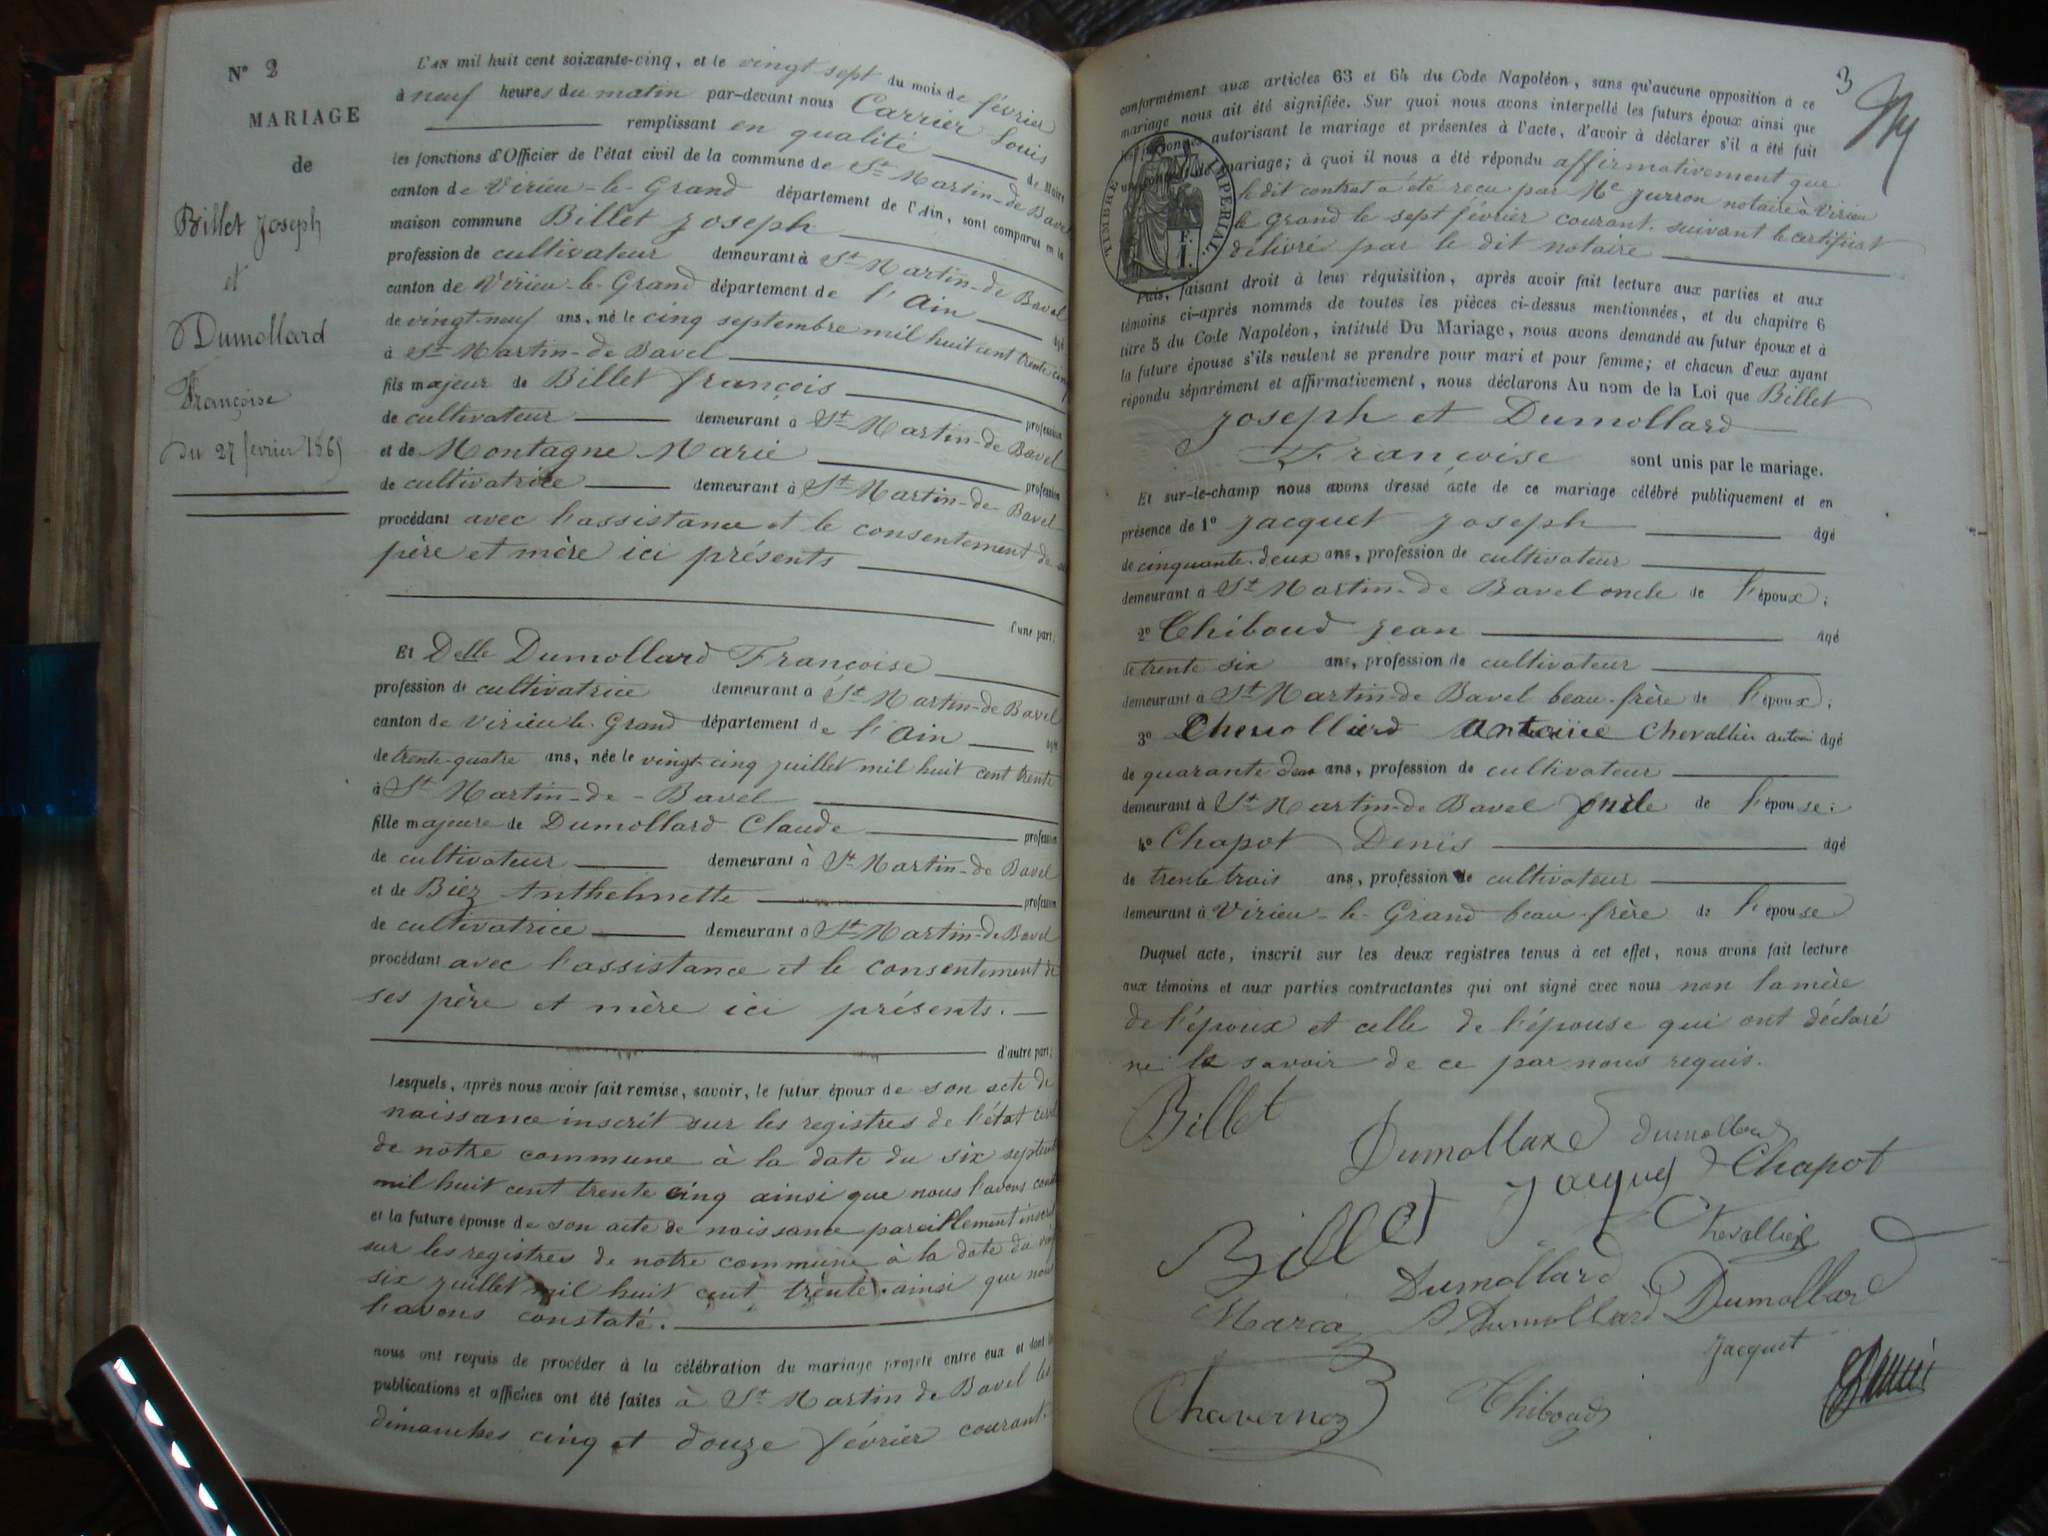 N° 2
MARIAGE
de
Billet Joseph
et
Dumollard
Françoise
du 27 fevrier 1865
L'an mil huit cent soixante-cinq, et le vingt sept du mois de février
à neuf heures du matin par-devant nous Carrier Louis
remplissant en qualité de Maire
les fonctions d'Officier de l'état civil de la commune de St Martin-de Bavel
canton de Virieu-le-Grand département de l'Ain, sont comparus en la
maison commune Billet Joseph
profession de cultivateur demeurant à St Martin-de Bavel
canton de Virieu-le-Grand département de l'Ain âgé
de vingt-neuf ans, né le cinq septembre mil huit cent trente cinq
à St Martin-de Bavel
fils majeur de Billet françois profession
de cultivateur demeurant à St Martin-de Bavel
et de Montagne Marie profession
de cultivatrice demeurant à St Martin-de-Bavel
procédant avec l'assistance et le consentement de ses
père et mère ici présents
d'une part;
Et Delle Dumollard Françoise
profession de cultivatrice demeurant à St Martin-de Bavel
canton de Virieu-le-Grand département de l'Ain âgée
de trente-quatre ans, née le vingt-cinq juillet mil huit cent trente
à St Martin-de-Bavel
fille majeure de Dumollard Claude profession
de cultivateur demeurant à St Martin-de Bavel
et de Biez Anthelmette profession
de cultivatrice demeurant à St Martin-de Bavel
procédant avec l'assistance et le consentement de
ses père et mère ici présents.
d'autre part;
Lesquels, après nous avoir fait remise, savoir, le futur époux de son acte de
naissance inscrit sur les registres de l'état civil
de notre commune à la date du six septembre
mil huit cent trente cinq ainsi que nous l'avons constaté
et la future épouse de son acte de naissance pareillement inscrit
sur les registres de notre commune à la date du vingt
six juillet mil huit cent trente, ainsi que nous
l'avons constaté.
nous ont requis de procéder à la célébration du mariage projeté entre eux et dont les
publications et affiches ont été faites à St Martin de Bavel les
dimanches cinq et douze février courant.
3
conformément aux articles 63 et 64 du Code Napoléon, sans qu'aucune opposition à ce
mariage nous ait été signifiée. Sur quoi nous avons interpellé les futurs époux ainsi que
les personnes autorisant le mariage et présentes à l'acte, d'avoir à déclarer s'il a été fait
un contrat de mariage; à quoi il nous a été répondu affirmativement que
le dit contrat a été reçu par Me Jurron notaire à Virieu
le Grand le sept février courant. suivant le certificat
délivré par le dit notaire
TIMBRE IMPERIAL
1 F.
Puis, faisant droit à leur réquisition, après avoir fait lecture aux parties et aux
témoins ci-après nommés de toutes les pièces ci-dessus mentionnées, et du chapitre 6
titre 5 du Code Napoléon, intitulé Du Mariage, nous avons demandé au futur époux et à
la future épouse s'ils veulent se prendre pour mari et pour femme; et chacun d'eux ayant
répondu séparément et affirmativement, nous déclarons Au nom de la Loi que Billet
Joseph et Dumollard
Françoise sont unis par le mariage.
Et sur-le-champ nous avons dressé acte de ce mariage célébré publiquement et en
présence de 1° Jacquet Joseph âgé
de cinquante-deux ans, profession de cultivateur
demeurant à St Martin-de Bavel oncle de l'époux;
2° Thiboud Jean âgé
de trente six ans, profession de cultivateur
demeurant à St Martin-de Bavel beau-frère de l'époux;
3° Chevallier antoine Chevallier antoine âgé
de quarante deux ans, profession de cultivateur
demeurant à St Martin-de Bavel oncle de l'épouse;
4° Chapot Denis âgé
de trente trois ans, profession de cultivateur
demeurant à Virieu-le-Grand beau-frère de l'épouse
Duquel acte, inscrit sur les deux registres tenus à cet effet, nous avons fait lecture
aux témoins et aux parties contractantes qui ont signé avec nous non la mère
de l'époux et celle de l'épouse qui ont déclaré
ne le savoir de ce par nous requis.
Billet
Dumollard dumollard
Jacquet d Chapot
Billet
Chevallier
Dumollard
Marca Dumollard Dumollard
Jacquet
Chavernoz Thiboud